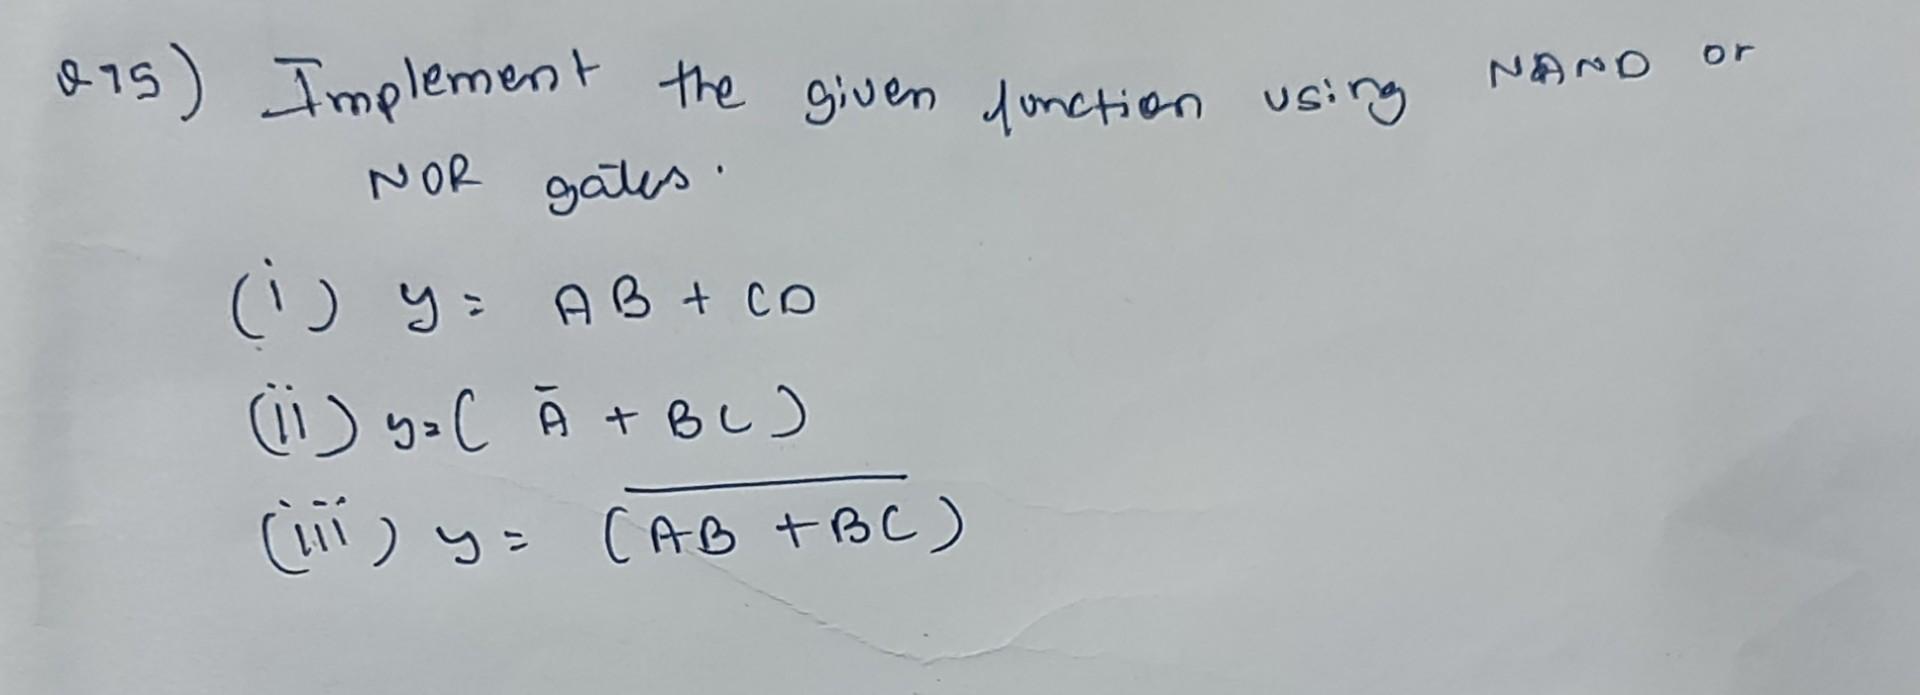 Q75) Implement the given function using NAND or
NOR gates.
(i) y = AB + CD
(ii) y = ( Ā + BC )
(iii) y = \overline{(AB + BC)}